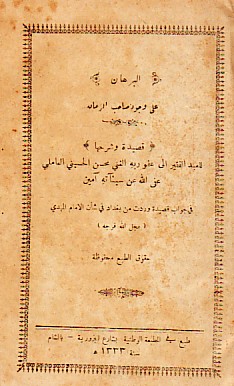 ﴿ البرهان ﴾
على وجود صاحب الزمان
﴿ قصيدة وشرحها ﴾
للعبد الفقير الى عفو ربه الغني محسن الحسيني العاملي
عفى الله عن سيئآته آمين
في جواب قصيدة وردت من بغداد في شأن الامام المهدي
( عجل الله فرجه )
حقوق الطبع محفوظة
طبع في المطبعة الوطنية بشارع البزورية – بالشام
سنة ١٣٣٣ ه